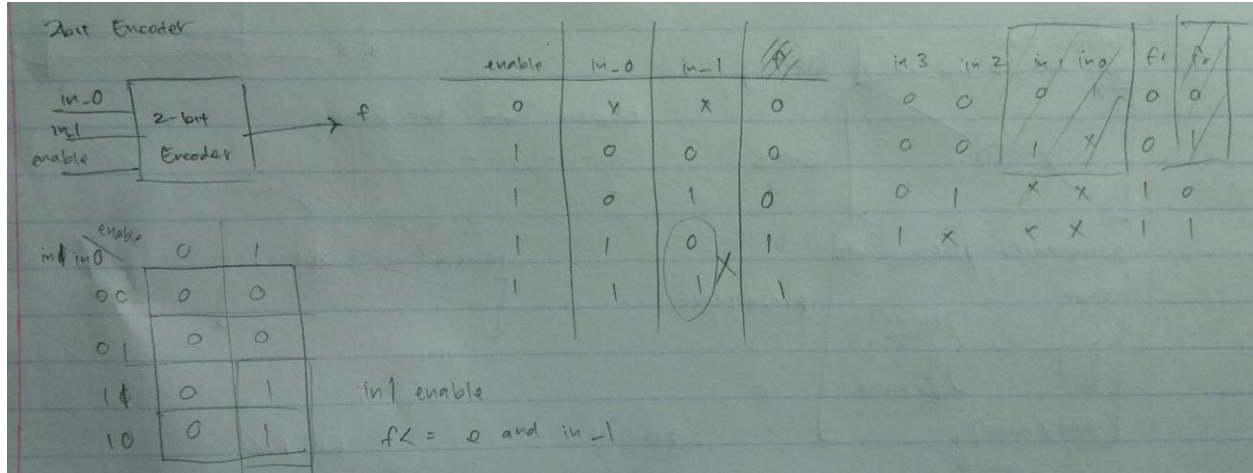 2bit Encoder
in_0
in_1
enable
2-bit
Encoder
f
enable in_0 in_1
0 x x 0
1 0 0 0
1 0 1 0
1 1 0 1
1 1 1 1
X
in3 in2 in1 in0 f1 f0
0 0 0 1 0 0
0 0 1 x 0 1
0 1 x x 1 0
1 x x x 1 1
enable
in1 in0 0 1
00 0 0
01 0 0
11 0 1
10 0 1
in1 enable
f<= e and in_1